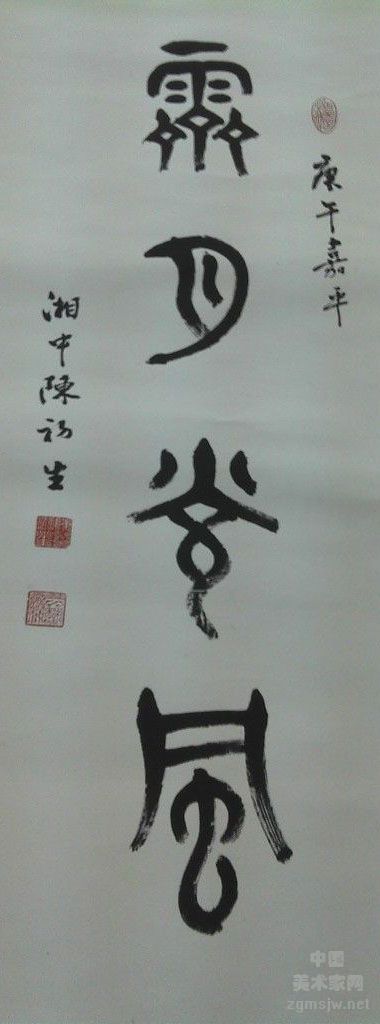 庚午嘉平
霽月光風
湘中陳初生
中国
美术家网
zgmsjw.net